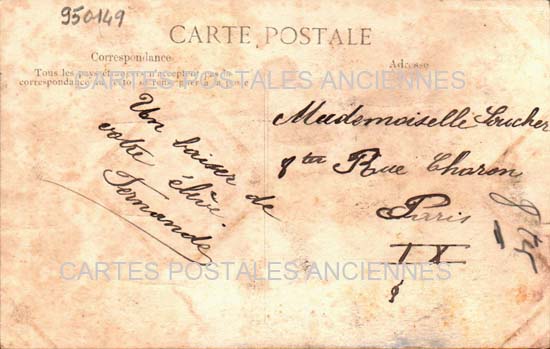 950149
CARTE POSTALE
Correspondance
Tous les pays étrangers n'acceptent pas la
correspondance au recto, se renseigner à la Poste
Adresse
CARTES POSTALES ANCIENNES
Un baiser de
votre élève
Fernande
Mademoiselle Loucher
Rue Charon
Paris
IX
CARTES POSTALES ANCIENNES